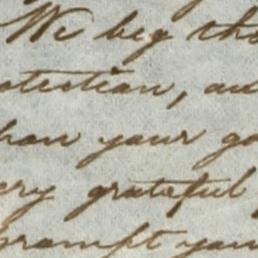 We beg tha
otection, an
hon your go
ery grateful
prompt your